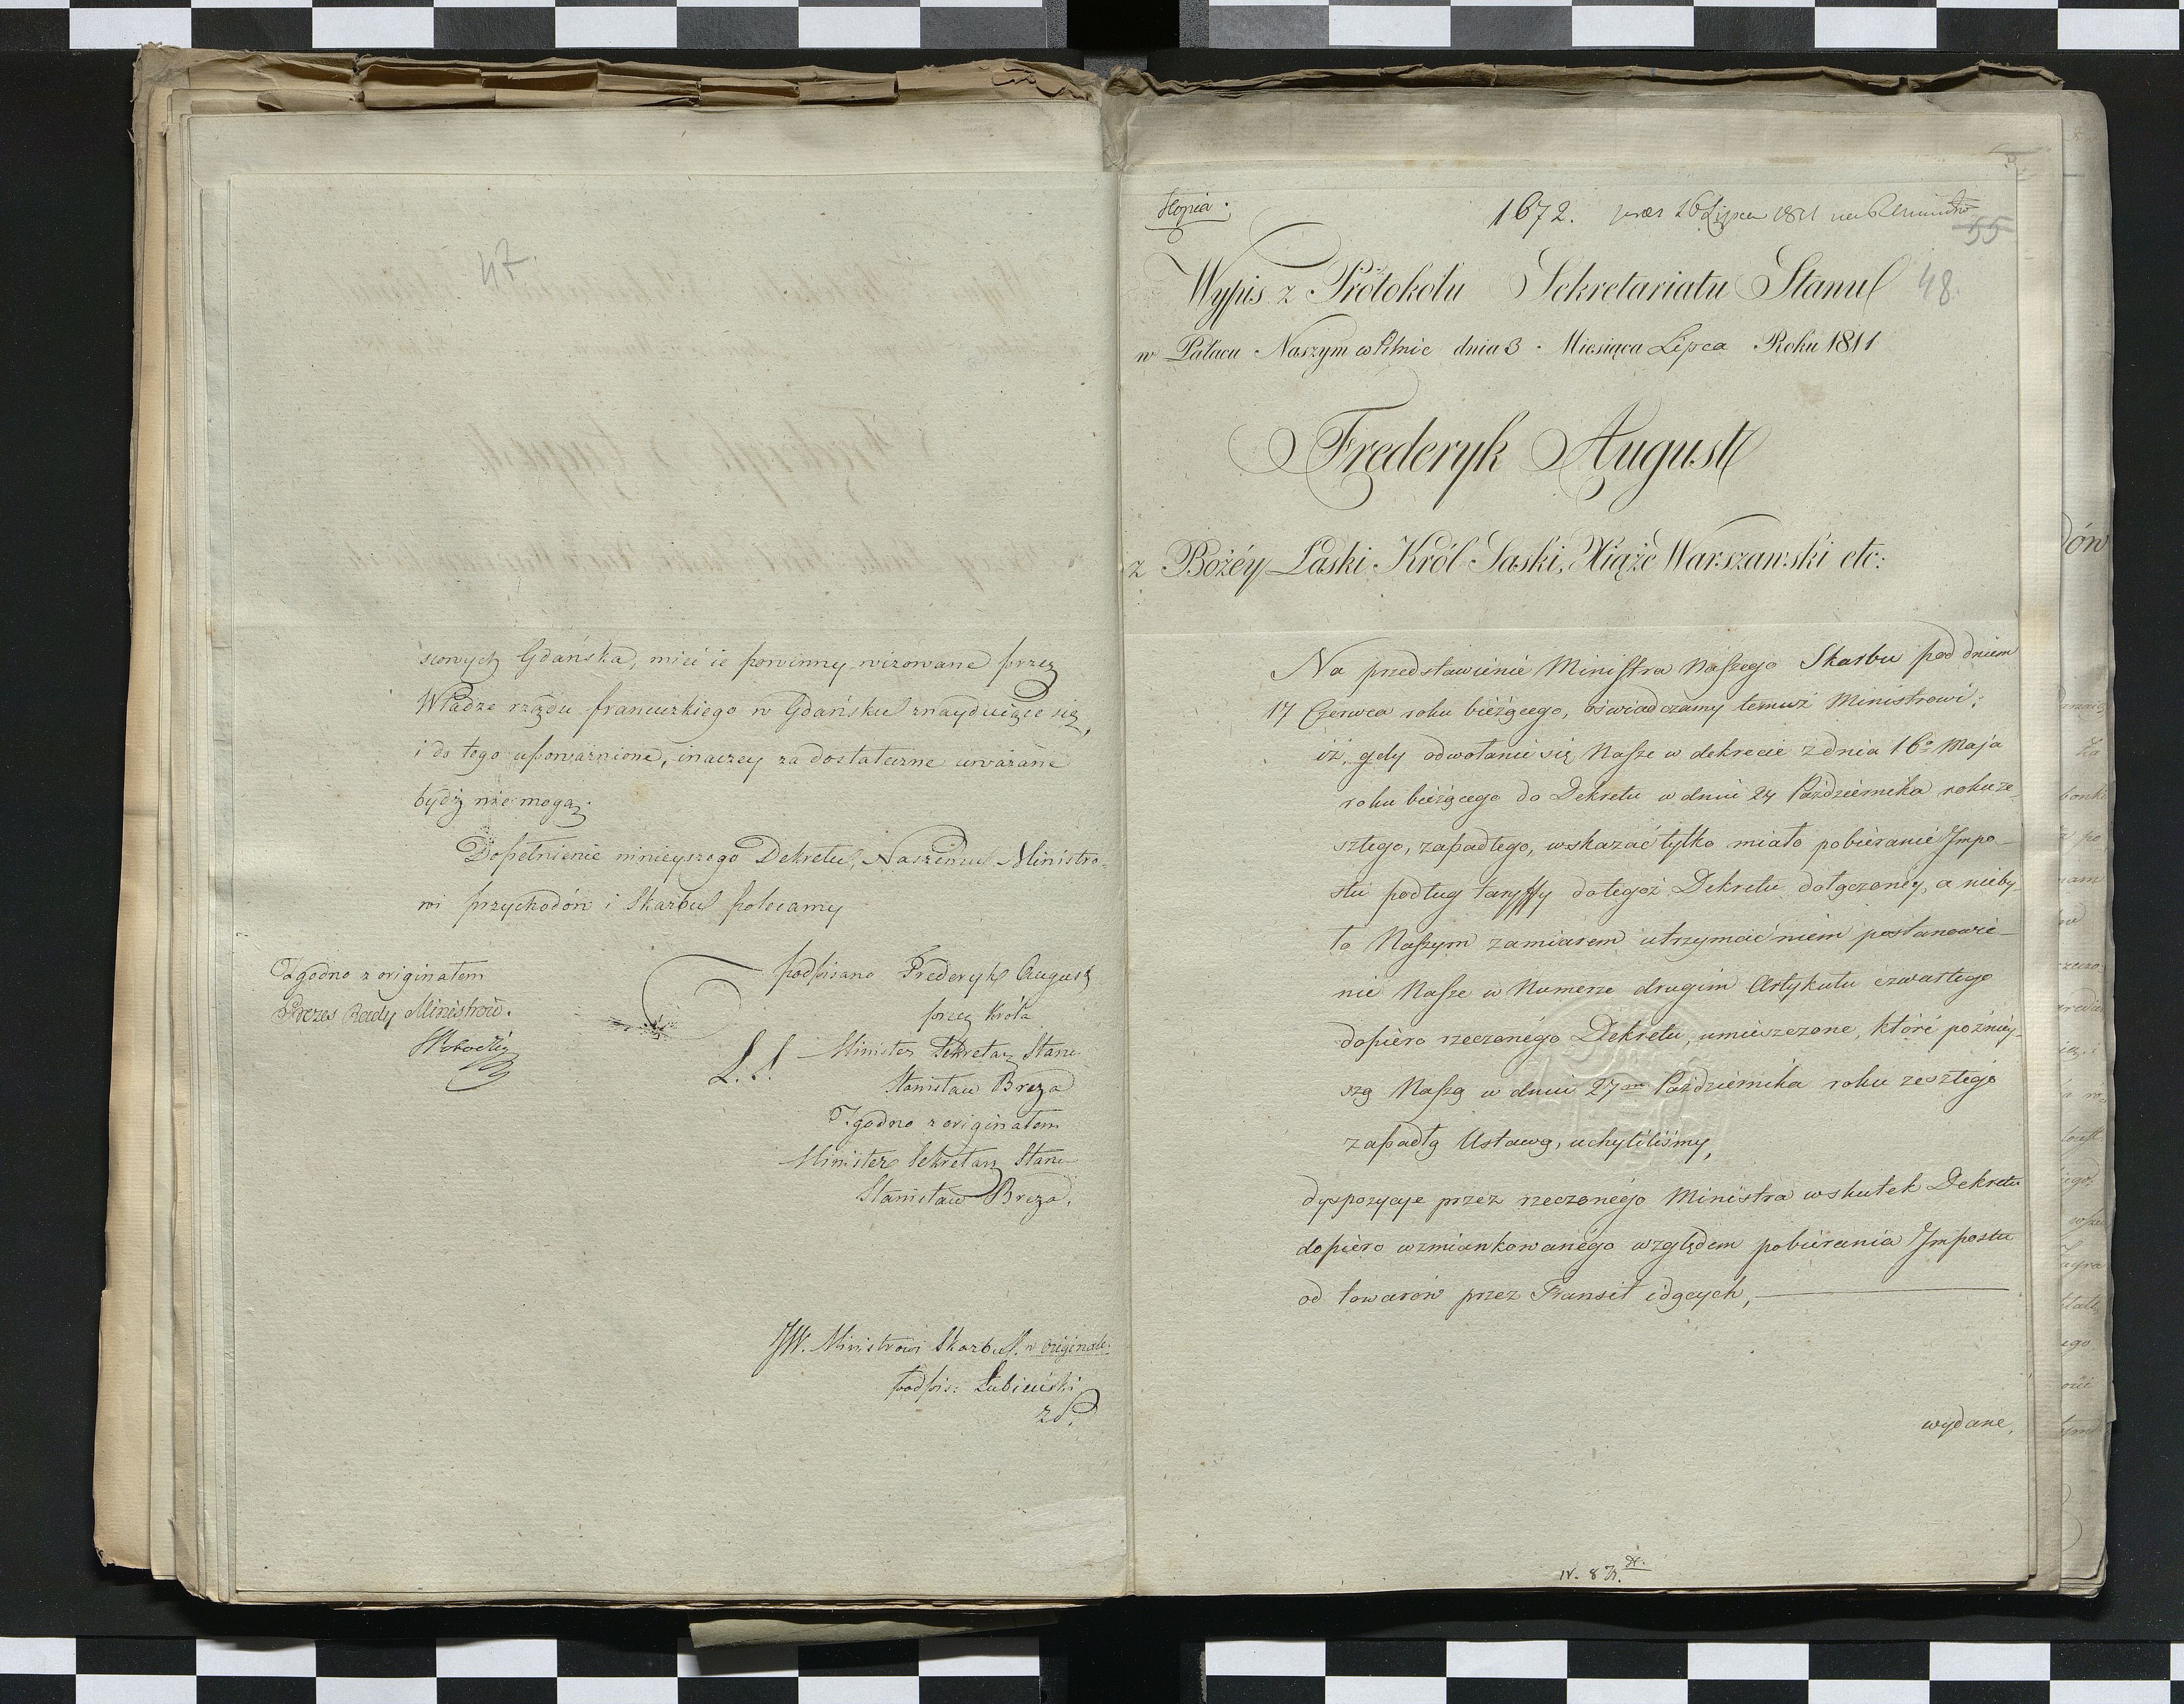 47.
scowych Gdańska, mieć ie powinny wizowane przez
Władze rządu francuzkiego w Gdańsku znayduiące się,
i do tego upoważnione, inaczey za dostateczne uważane
bydź nie mogą.
Dopełnienie ninieyszego Dekretu, Naszemu Ministro-
wi przychodów i Skarbu polecamy
Zgodno z originałem
Prezes Rady Ministrów.
podpisano Frederyk August
przez Króla
L. S.
Minister Sekretarz Stanu
Stanisław Breza
Zgodno z originałem
Minister Sekretarz Stanu
Stanisław Breza,
JW. Ministrowi Skarbu w originale
podpis: Łubieński
Kopia.
1672. 26 Lipca 1811
55
Wypis z Protokołu Sekretariatu Stanu 48.
w Pałacu Naszym w Pilnic dnia 3 Miesiąca Lipca Roku 1811
Frederyk August
z Bożéy Łaski Król Saski, Xiąże Warszawski etc:
Na przedstawienie Ministra Naszego Skarbu pod dniem
17 Czerwca roku bieżącego, oświadczamy temuż Ministrowi;
iż, gdy odwołanie się Nasze w dekrecie z dnia 16º Maja
roku bieżącego do Dekretu w dniu 24 Października roku ze-
szłego, zapadłego, wskazać tylko miało pobieranie Impo-
stu podług taryffy do tegoż Dekretu dołączonéy, a nieby-
ło Naszym zamiarem utrzymać niem postanowie-
nie Nasze w Numerze drugim Artykułu czwartego
dopiéro rzeczonégo Dekretu, umieszczone, któré poźniéy-
szą Naszą w dniu 27 Października roku zeszłego
zapadłą Ustawą, uchyliliśmy,
dyspozycye przez rzeczonégo Ministra wskutek Dekretu
dopiéro wzmiankowanégo względem pobierania Impostu
od towarów przez Transit idących,
wydane,